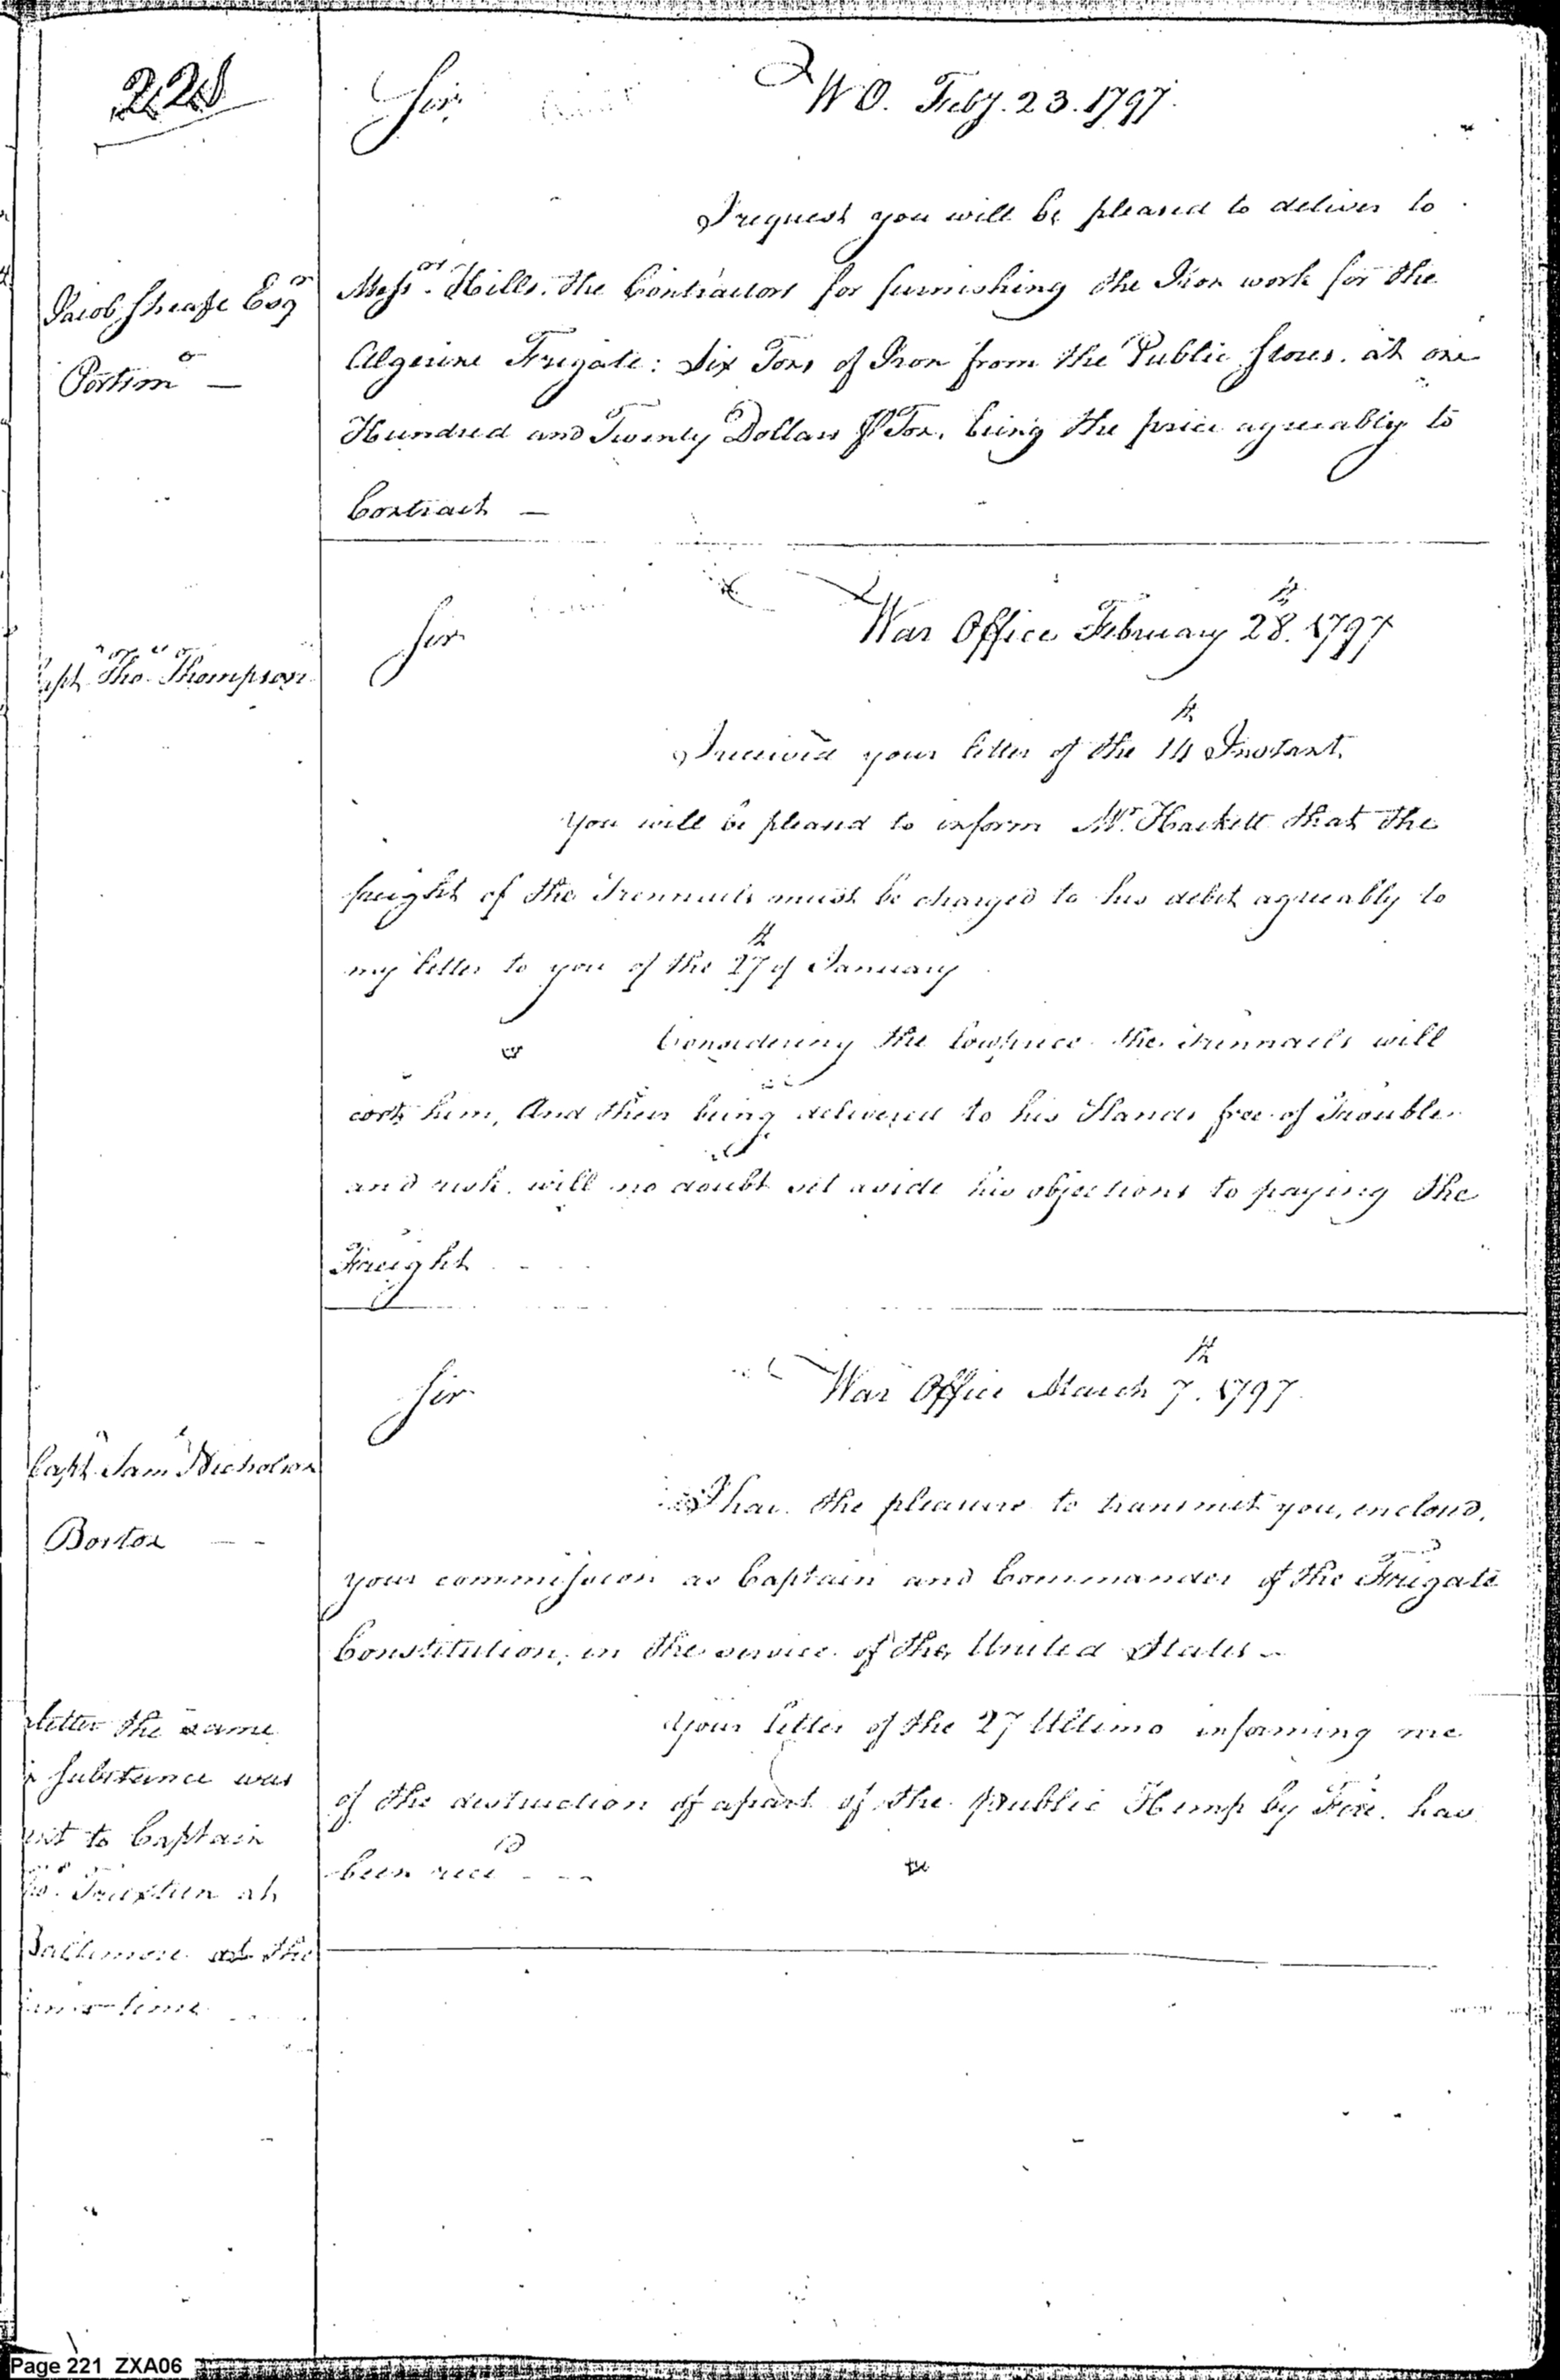 221
Sir
W O. Feby. 23. 1797.
Jacob Sheafe Esqr
Portsmo —
I request you will be pleased to deliver to
Messrs. Hills. the Contractors for furnishing the Iron work for the
Algerine Frigate: Six Tons of Iron from the Public Stores. at one
Hundred and Twenty Dollars ⅌ Ton. being the price agreeably to
Contract —
Sir
War Office February 28th. 1797
Capt. Tho. Thompson
I received your letter of the 14th Instant.
You will be pleased to inform Mr. Hackett that the
freight of the Trennails must be charged to his debit agreeably to
my letter to you of the 27th of January
Considering the low price the trennails will
cost him, And their being delivered to his Hands free of Trouble
and risk. will no doubt set aside his objections to paying the
Freight
Sir
War Office March 7th. 1797.
Capt. Saml Nicholson
Boston — -
I have the pleasure to transmit you, enclosed,
your commission as Captain and Commander of the Frigate
Constitution, in the service of the United States -
Your letter of the 27 Ultimo informing me
of the destruction of a part of the public Hemp by Fire. has
been recd - - -
letter the same
in substance was
sent to Captain
Tho. Truxtun at
Baltimore at the
same time
Page 221 ZXA06